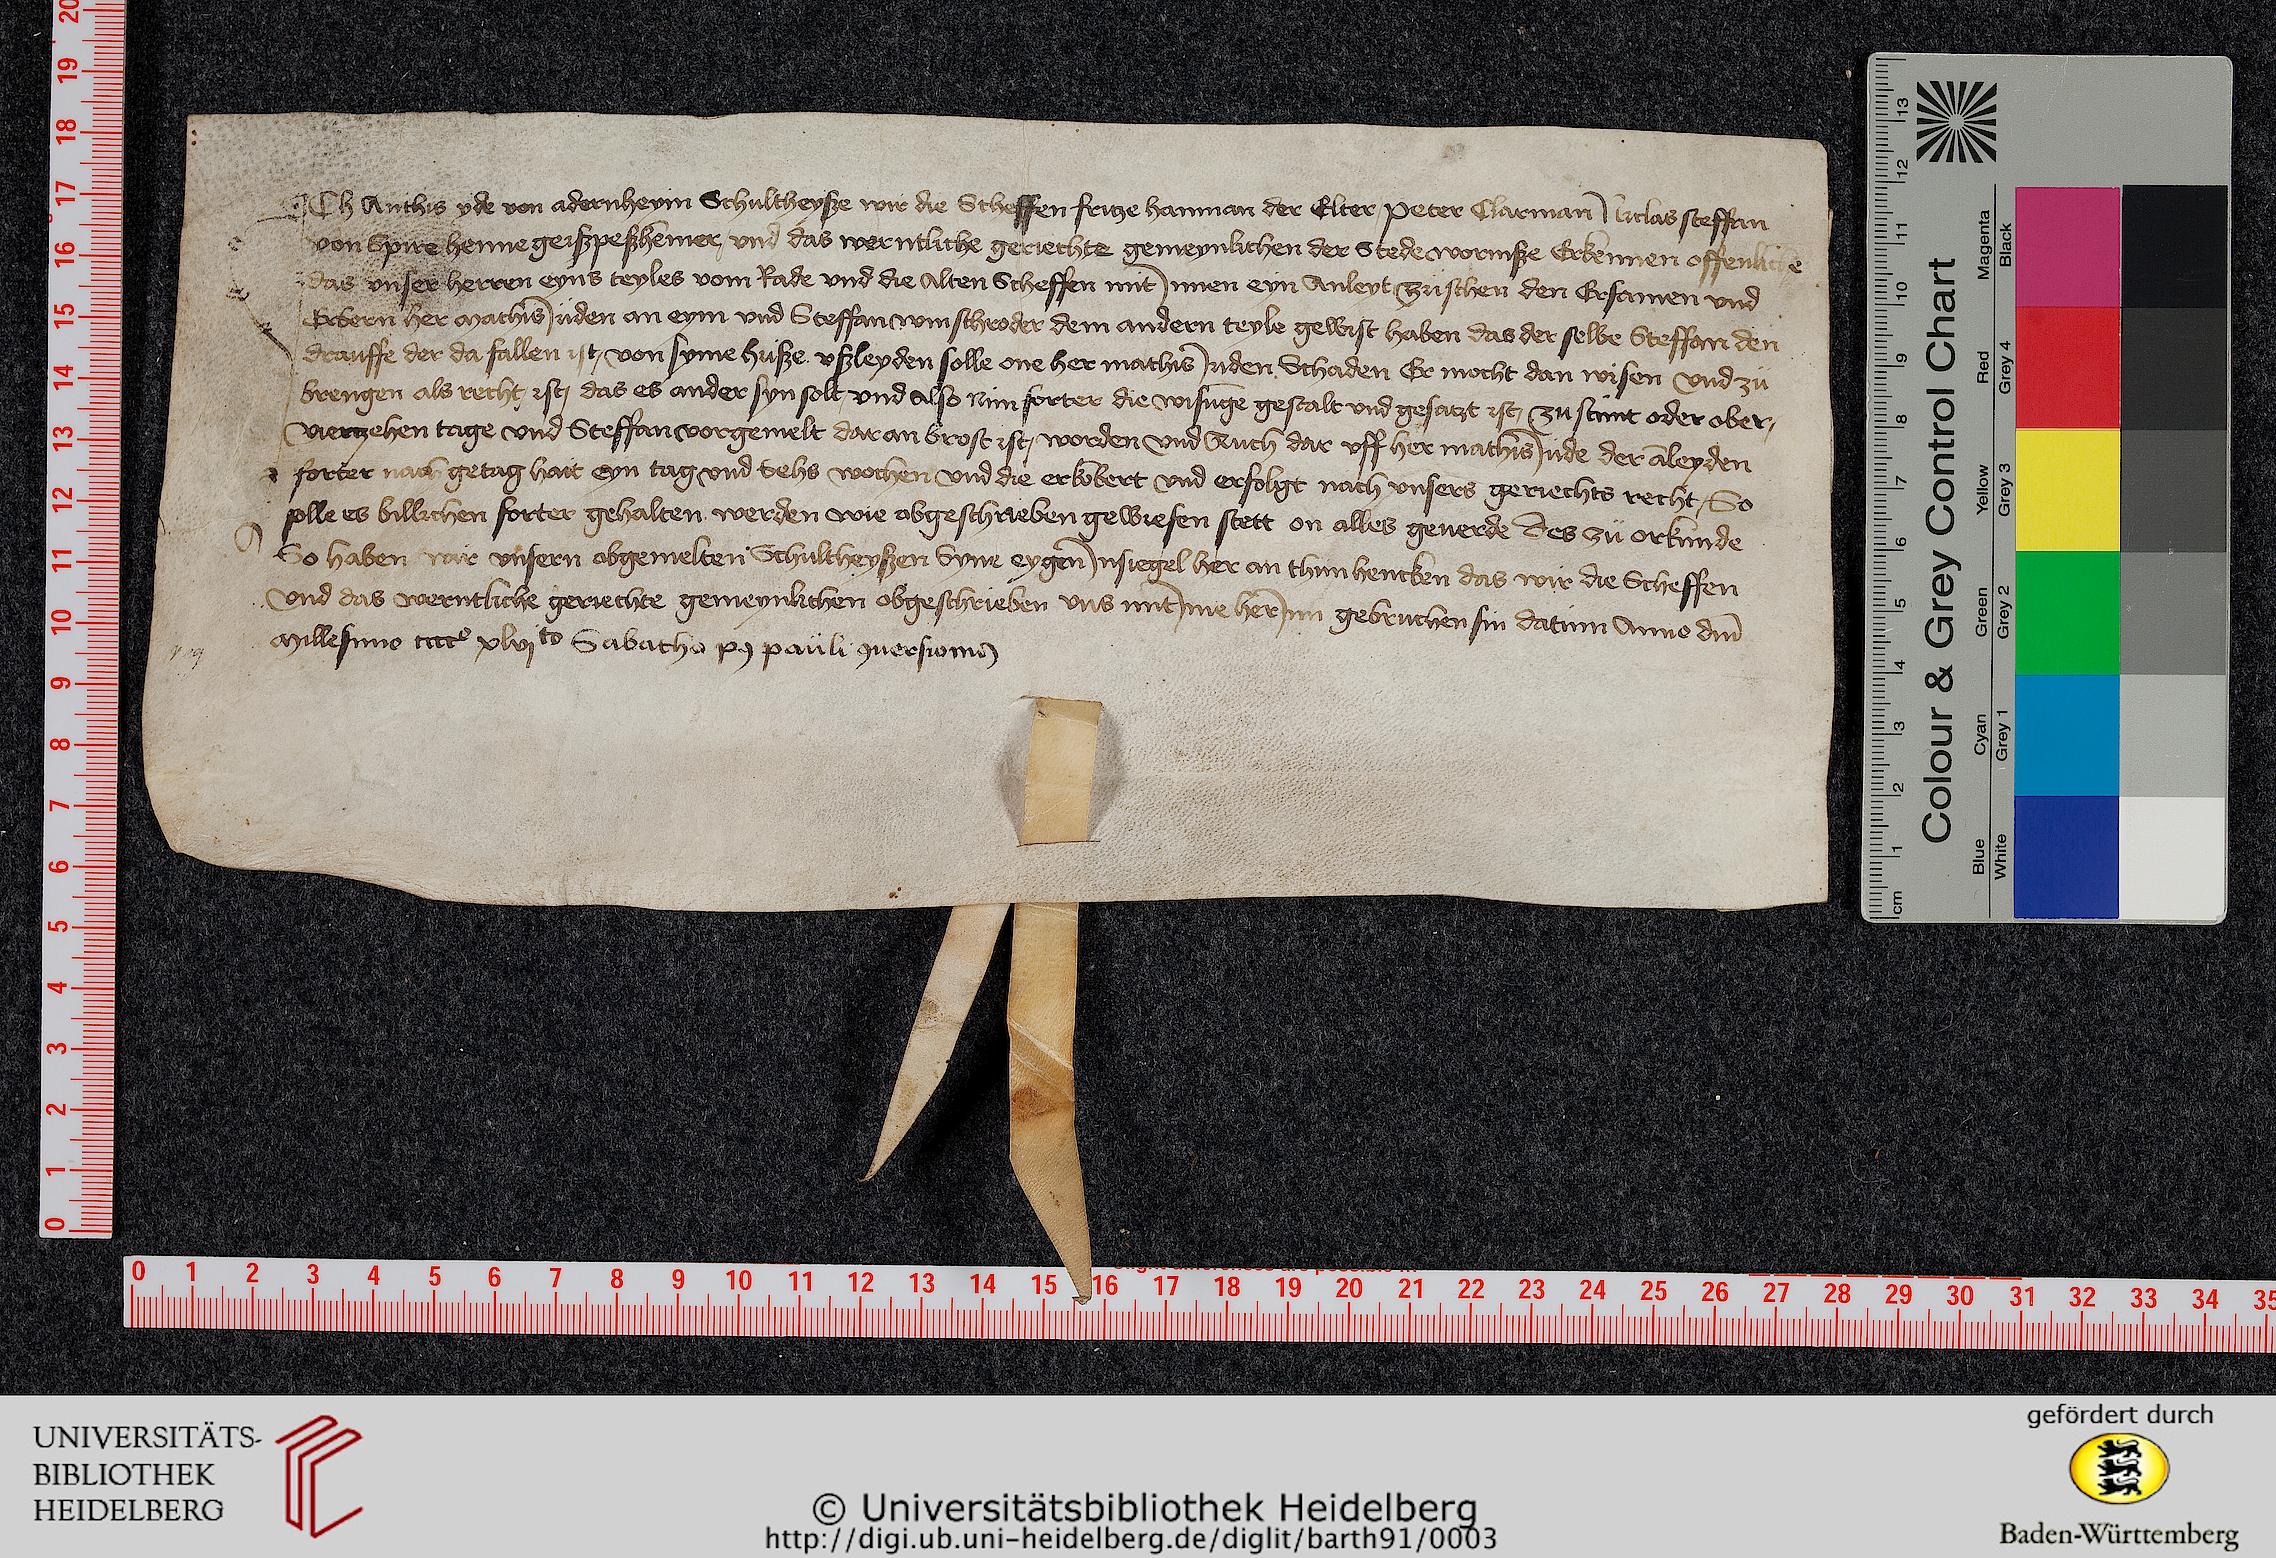 ICh Anthis yde von adernheym Schultheysze wir die Scheffen fritze hamman der Elter peter Clarman Niclas steffan
von Spire henne geiszpeszheimer und das werntliche geriechte gemeynlichen der Stede wormsze Erkennen offenliche
das unser herren eyns teyles vom Rade und die Alten Scheffen mit Innen eyn Anleyt zuschen den Ersamen und
Erbern her Mathis Iuden an eym und Steffan winschroder dem andern teyle gewist haben das der selbe Steffan den
drauffe der da fallen ist von syme husze uszleyden solle one her mathis Iuden Schaden Er mocht dan wisen und zu
brengen als recht ist das es ander syn solt und Also Nim forter die wisunge gestalt und gesatzt ist zu stunt oder ober
viertzehen tage und Steffan vorgemelt dar an brost ist worden und Auch dar uff her mathis Iude der aleyden
forter nach getag hait eyn tag und Sehs wochen und die erkobert und erfolgt nach unsers geriechts recht So
solle es billichen forter gehalten werden wie abgeschrieben gewiesen stett on alles geverde Des zu orkunde
So haben wir unsern obgemelten Schultheyszen Syne eygen Insiegel her an thun hencken das wir die Scheffen
und das werntliche geriechte gemeynlichen obgeschrieben uns mit Ime her Inn gebruchen sin datum Anno dm
Millesimo cccc° xlvito Sabatho p9 pauli 9versionis
Colour & Grey Control Chart
Blue Cyan Green Yellow Red Magenta
White Grey 1 Grey 2 Grey 3 Grey 4 Black
cm 1 2 3 4 5 6 7 8 9 10 11 12 13
20 19 18 17 16 15 14 13 12 11 10 9 8 7 6 5 4 3 2 1 0
0 1 2 3 4 5 6 7 8 9 10 11 12 13 14 15 16 17 18 19 20 21 22 23 24 25 26 27 28 29 30 31 32 33 34 35
UNIVERSITÄTS-
BIBLIOTHEK
HEIDELBERG
© Universitätsbibliothek Heidelberg
http://digi.ub.uni-heidelberg.de/diglit/barth91/0003
gefördert durch
Baden-Württemberg